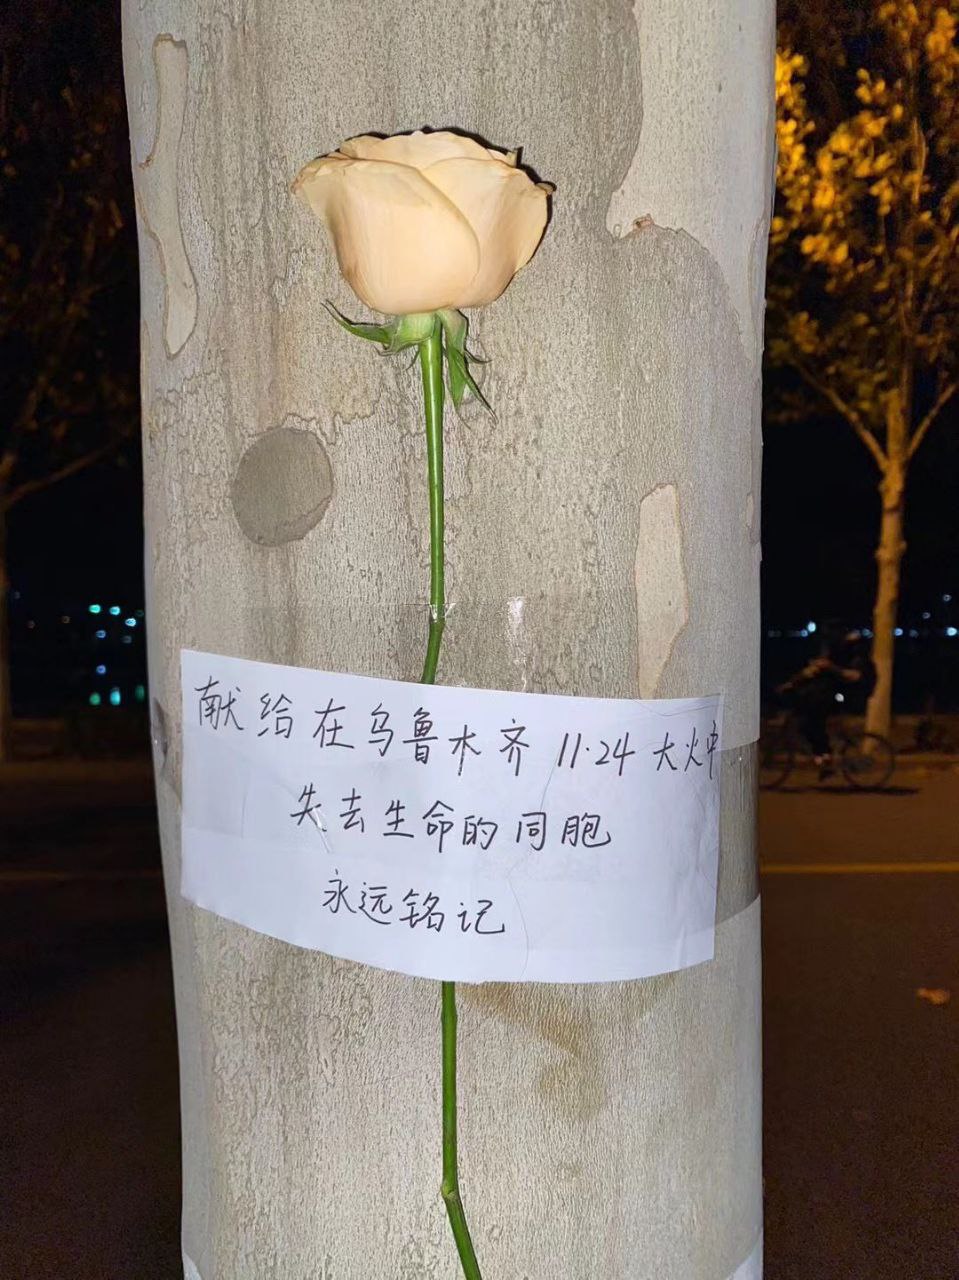 献给在乌鲁木齐 11·24 大火中
失去生命的同胞
永远铭记